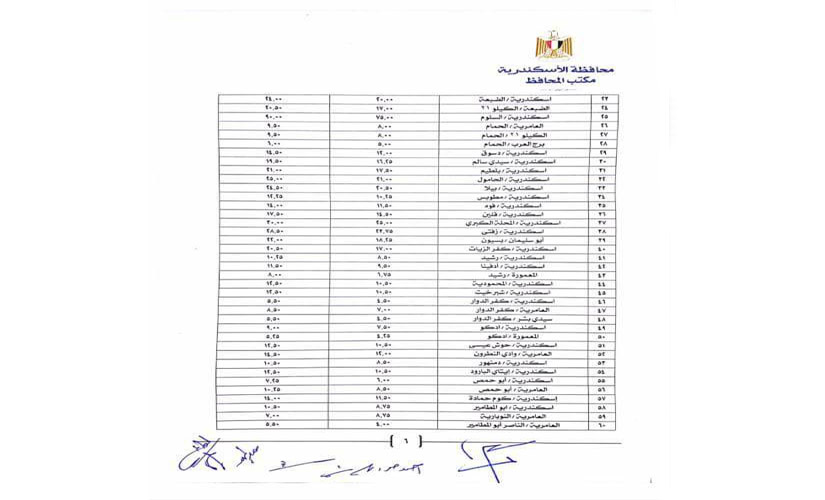 محافظة الأسكندرية
مكتب المحافظ
٢٣ اسكندرية / الضبعة ٢٠,٠٠ ٢٤,٠٠
٢٤ الضبعة / الكيلو ٢١ ١٧,٠٠ ٢٠,٥٠
٢٥ اسكندرية / السلوم ٧٥,٠٠ ٩٠,٠٠
٢٦ العامرية / الحمام ٨,٠٠ ٩,٥٠
٢٧ الكيلو ٢١ / الحمام ٨,٠٠ ٩,٥٠
٢٨ برج العرب / الحمام ٥,٠٠ ٦,٠٠
٢٩ اسكندرية / دسوق ١٢,٠٠ ١٤,٥٠
٣٠ اسكندرية / سيدي سالم ١٦,٢٥ ١٩,٥٠
٣١ اسكندرية / بلطيم ١٧,٥٠ ٢١,٠٠
٣٢ اسكندرية / الحامول ٢١,٠٠ ٢٥,٠٠
٣٣ اسكندرية / بيلا ٢٠,٥٠ ٢٤,٥٠
٣٤ اسكندرية / مطوبس ١٠,٢٥ ١٢,٢٥
٣٥ اسكندرية / فوه ١١,٥٠ ١٤,٠٠
٣٦ اسكندرية / قلين ١٤,٥٠ ١٧,٥٠
٣٧ اسكندرية / المحلة الكبرى ٢٥,٠٠ ٣٠,٠٠
٣٨ اسكندرية / زفتى ٢٣,٧٥ ٢٨,٥٠
٣٩ أبو سليمان / بسيون ١٨,٢٥ ٢٢,٠٠
٤٠ اسكندرية / كفر الزيات ١٧,٠٠ ٢٠,٥٠
٤١ اسكندرية / رشيد ٨,٥٠ ١٠,٢٥
٤٢ اسكندرية / أدفينا ٩,٥٠ ١١,٥٠
٤٣ المعمورة / رشيد ٦,٧٥ ٨,٠٠
٤٤ اسكندرية / المحمودية ١٠,٥٠ ١٢,٥٠
٤٥ اسكندرية / شبرخيت ١٠,٥٠ ١٢,٥٠
٤٦ اسكندرية / كفر الدوار ٤,٥٠ ٥,٥٠
٤٧ العامرية / كفر الدوار ٧,٠٠ ٨,٥٠
٤٨ سيدي بشر / كفر الدوار ٤,٥٠ ٥,٥٠
٤٩ اسكندرية / ادكو ٧,٥٠ ٩,٠٠
٥٠ المعمورة / ادكو ٤,٢٥ ٥,٢٥
٥١ اسكندرية / حوش عيسى ١٠,٥٠ ١٢,٥٠
٥٢ العامرية / وادي النطرون ١٢,٠٠ ١٤,٥٠
٥٣ اسكندرية / دمنهور ٨,٥٠ ١٠,٥٠
٥٤ اسكندرية / إيتاي البارود ١٠,٥٠ ١٢,٥٠
٥٥ اسكندرية / أبو حمص ٦,٠٠ ٧,٢٥
٥٦ العامرية / أبو حمص ٨,٥٠ ١٠,٢٥
٥٧ إسكندرية / كوم حمادة ١١,٥٠ ١٤,٠٠
٥٨ اسكندرية / ابو المطامير ٨,٧٥ ١٠,٥٠
٥٩ العامرية / النوبارية ٨,٧٥ ٧,٠٠
٦٠ العامرية / الناصر أبو المطامير ٤,٠٠ ٥,٥٠
[ ٦ ]